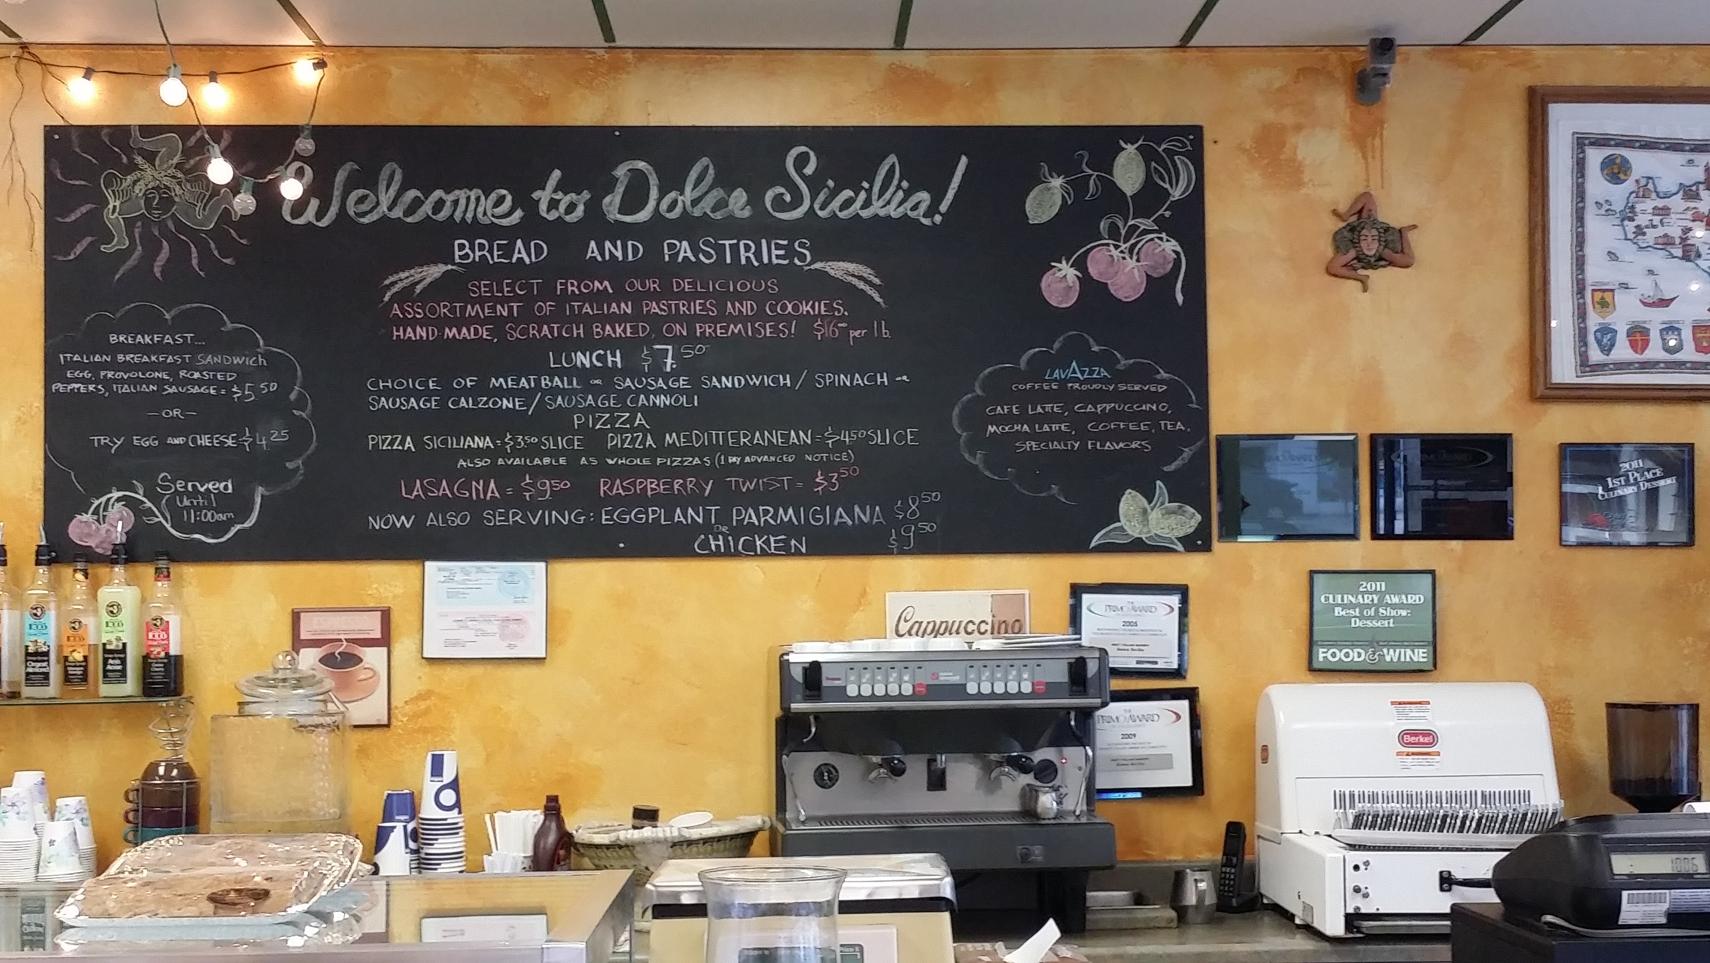 Welcome to Dolce Sicilia!
BREAD AND PASTRIES
SELECT FROM OUR DELICIOUS
ASSORTMENT OF ITALIAN PASTRIES AND COOKIES.
HAND-MADE, SCRATCH BAKED, ON PREMISES! $16.00 per lb.
LUNCH $7.50
CHOICE OF MEATBALL OR SAUSAGE SANDWICH / SPINACH OR
SAUSAGE CALZONE / SAUSAGE CANNOLI
PIZZA
PIZZA SICILIANA = $3.50 SLICE PIZZA MEDITTERANEAN = $4.50 SLICE
ALSO AVAILABLE AS WHOLE PIZZAS (1 DAY ADVANCED NOTICE)
LASAGNA = $9.50 RASPBERRY TWIST = $3.50
NOW ALSO SERVING: EGGPLANT PARMIGIANA $8.50
OR
CHICKEN $9.50
BREAKFAST...
ITALIAN BREAKFAST SANDWICH
EGG, PROVOLONE, ROASTED
PEPPERS, ITALIAN SAUSAGE = $5.50
—OR—
TRY EGG AND CHEESE = $4.25
Served
Until
11:00am
LAVAZZA
COFFEE PROUDLY SERVED
CAFE LATTE, CAPPUCCINO,
MOCHA LATTE, COFFEE, TEA,
SPECIALTY FLAVORS
2011
1ST PLACE
CULINARY DESSERT
2011
CULINARY AWARD
Best of Show:
Dessert
FOOD & WINE
Cappuccino
THE
PRIMO AWARD
2005
THE
PRIMO AWARD
2009
Berkel